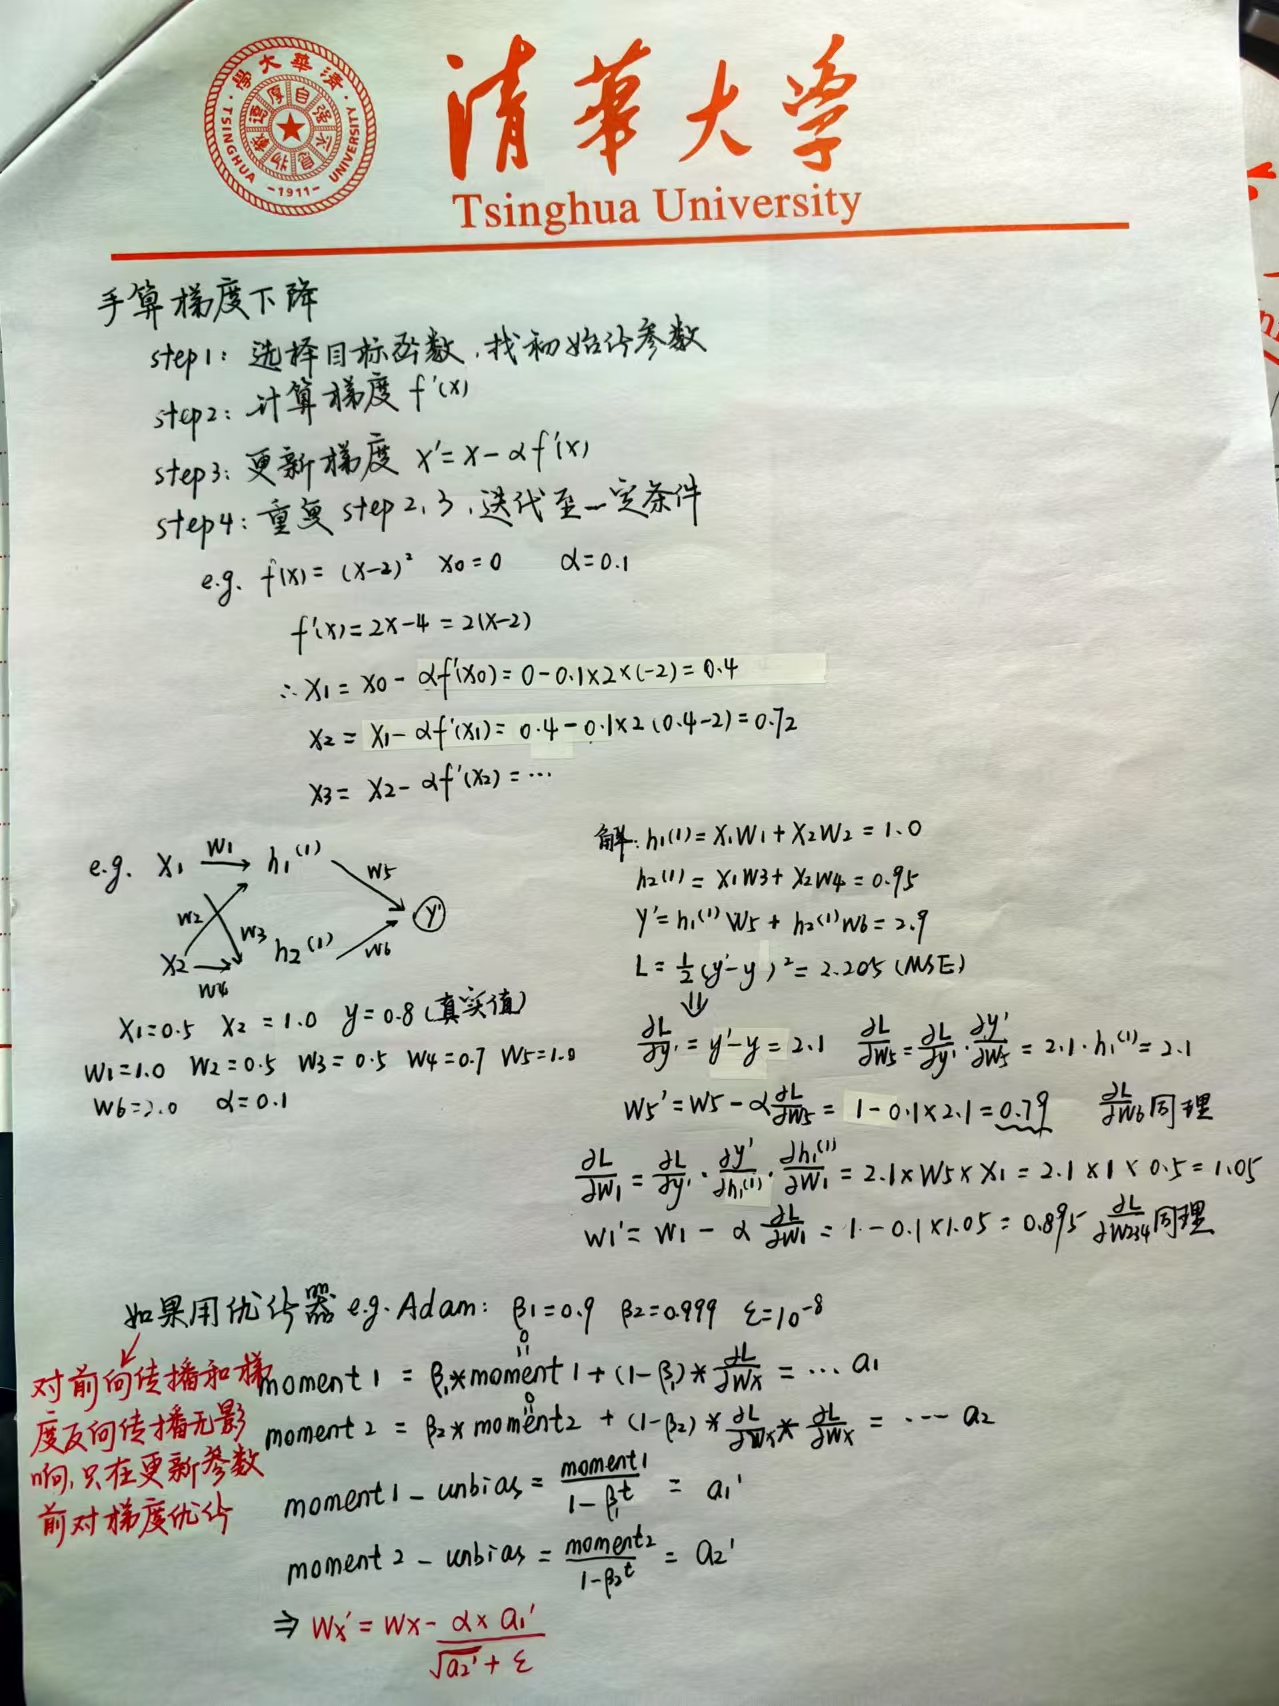 清華大学
Tsinghua University
學大華清
TSINGHUA UNIVERSITY
-1911-
自强不息
厚德載物
手算梯度下降
step1: 选择目标函数, 找初始化参数
step2: 计算梯度 f'(x)
step3: 更新梯度 x'=x-αf'(x)
step4: 重复step2,3, 迭代至一定条件
e.g. f(x)=(x-2)² x0=0 α=0.1
f'(x)=2x-4=2(x-2)
∴x1=x0-αf'(x0)=0-0.1×2×(-2)=0.4
x2=x1-αf'(x1)=0.4-0.1×2(0.4-2)=0.72
x3=x2-αf'(x2)=...
e.g. x1 w1 h1(1) w5
w2 w3 y'
x2 w4 h2(1) w6
x1=0.5 x2=1.0 y=0.8(真实值)
w1=1.0 w2=0.5 w3=0.5 w4=0.7 w5=1.0
w6=2.0 α=0.1
解: h1(1)=x1w1+x2w2=1.0
h2(1)=x1w3+x2w4=0.95
y'=h1(1)w5+h2(1)w6=2.9
L=1/2(y'-y)²=2.205(MSE)
⇓
∂L/∂y'=y'-y=2.1 ∂L/∂w5=∂L/∂y'·∂y'/∂w5=2.1·h1(1)=2.1
w5'=w5-α∂L/∂w5=1-0.1×2.1=0.79 ∂L/∂w6同理
∂L/∂w1=∂L/∂y'·∂y'/∂h1(1)·∂h1(1)/∂w1=2.1×w5×x1=2.1×1×0.5=1.05
w1'=w1-α∂L/∂w1=1-0.1×1.05=0.895 ∂L/∂w234同理
如果用优化器 e.g. Adam: β1=0.9 β2=0.999 ε=10⁻⁸
对前向传播和梯
度反向传播无影
响,只在更新参数
前对梯度优化
0
=
moment1=β1*moment1+(1-β1)*∂L/∂wx=...a1
0
=
moment2=β2*moment2+(1-β2)*∂L/∂wx*∂L/∂wx=...a2
moment1-unbias=moment1/1-β1^t=a1'
moment2-unbias=moment2/1-β2^t=a2'
⇒wx'=wx-α×a1'/√a2'+ε